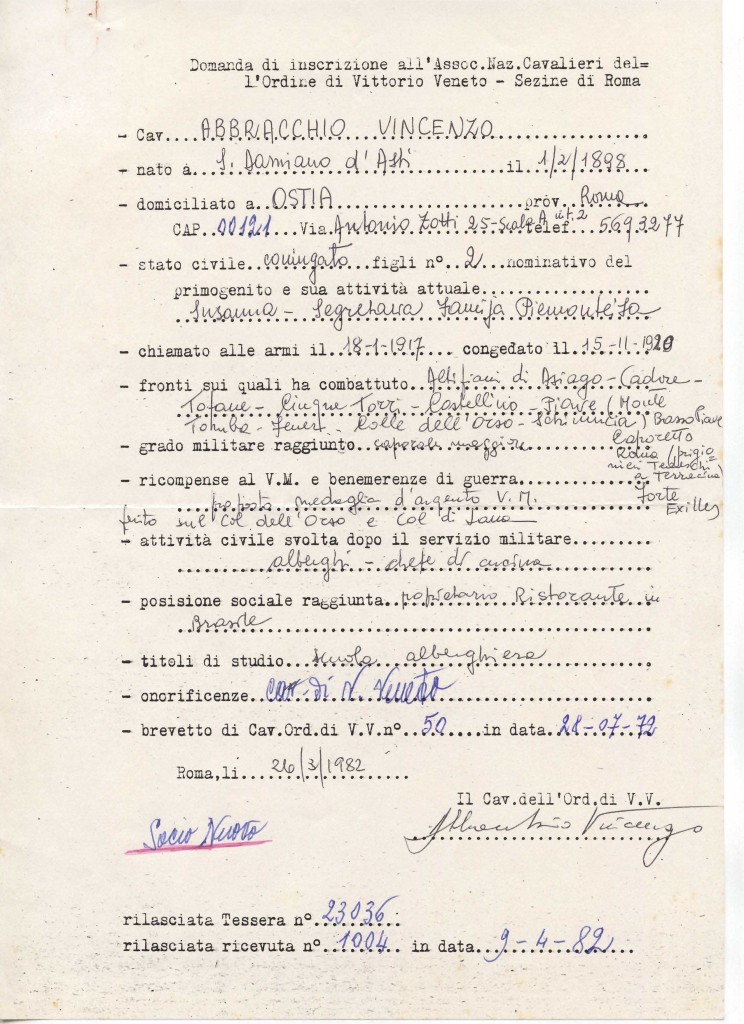 Domanda di inscrizione all'Assoc.Naz.Cavalieri del=
l'Ordine di Vittorio Veneto - Sezine di Roma
- Cav....ABBRIACCHIO VINCENZO
- nato a. S. Damiano d'Asti il 1/2/1898
- domiciliato a OSTIA prov. Roma
CAP..00121 Via. Antonio Zotti 25-Scala A int. 2 telef. 5693277
- stato civile coniugato figli n°..2...nominativo del
primogenito e sua attività attuale
Susanna - Segretaria Famija Piemontèisa
- chiamato alle armi il 18-1-1917 congedato il 15-11-1920
- fronti sui quali ha combattuto Altipiani di Asiago - Cadore -
Tofane - Cinque Torri - Castellino - Piave (Monte
Tomba - Fener - Colle dell'Orso - ) Basso Piave
Caporetto
- grado militare raggiunto caporale maggiore
Roma (prigio=
nieri Tedeschi
a Terracina)
Forte
Exilles
- ricompense al V.M. e benemerenze di guerra
proposta medaglia d'argento V.M.
ferito sul Col dell'Orso e Col di Lana
- attività civile svolta dopo il servizio militare
alberghi - chefe di cucina
- posizione sociale raggiunta proprietario Ristorante in
Brasile
- titoli di studio scuola alberghiera
- onorificenze cav. di V. Veneto
- brevetto di Cav.Ord.di V.V.n° 50 in data 28-07-72
Roma,li 26/3/1982
Il Cav.dell'Ord.di V.V.
Socio Nuovo
Abbriacchio Vincenzo
rilasciata Tessera n° 23036
rilasciata ricevuta n° 1004 in data 9-4-82